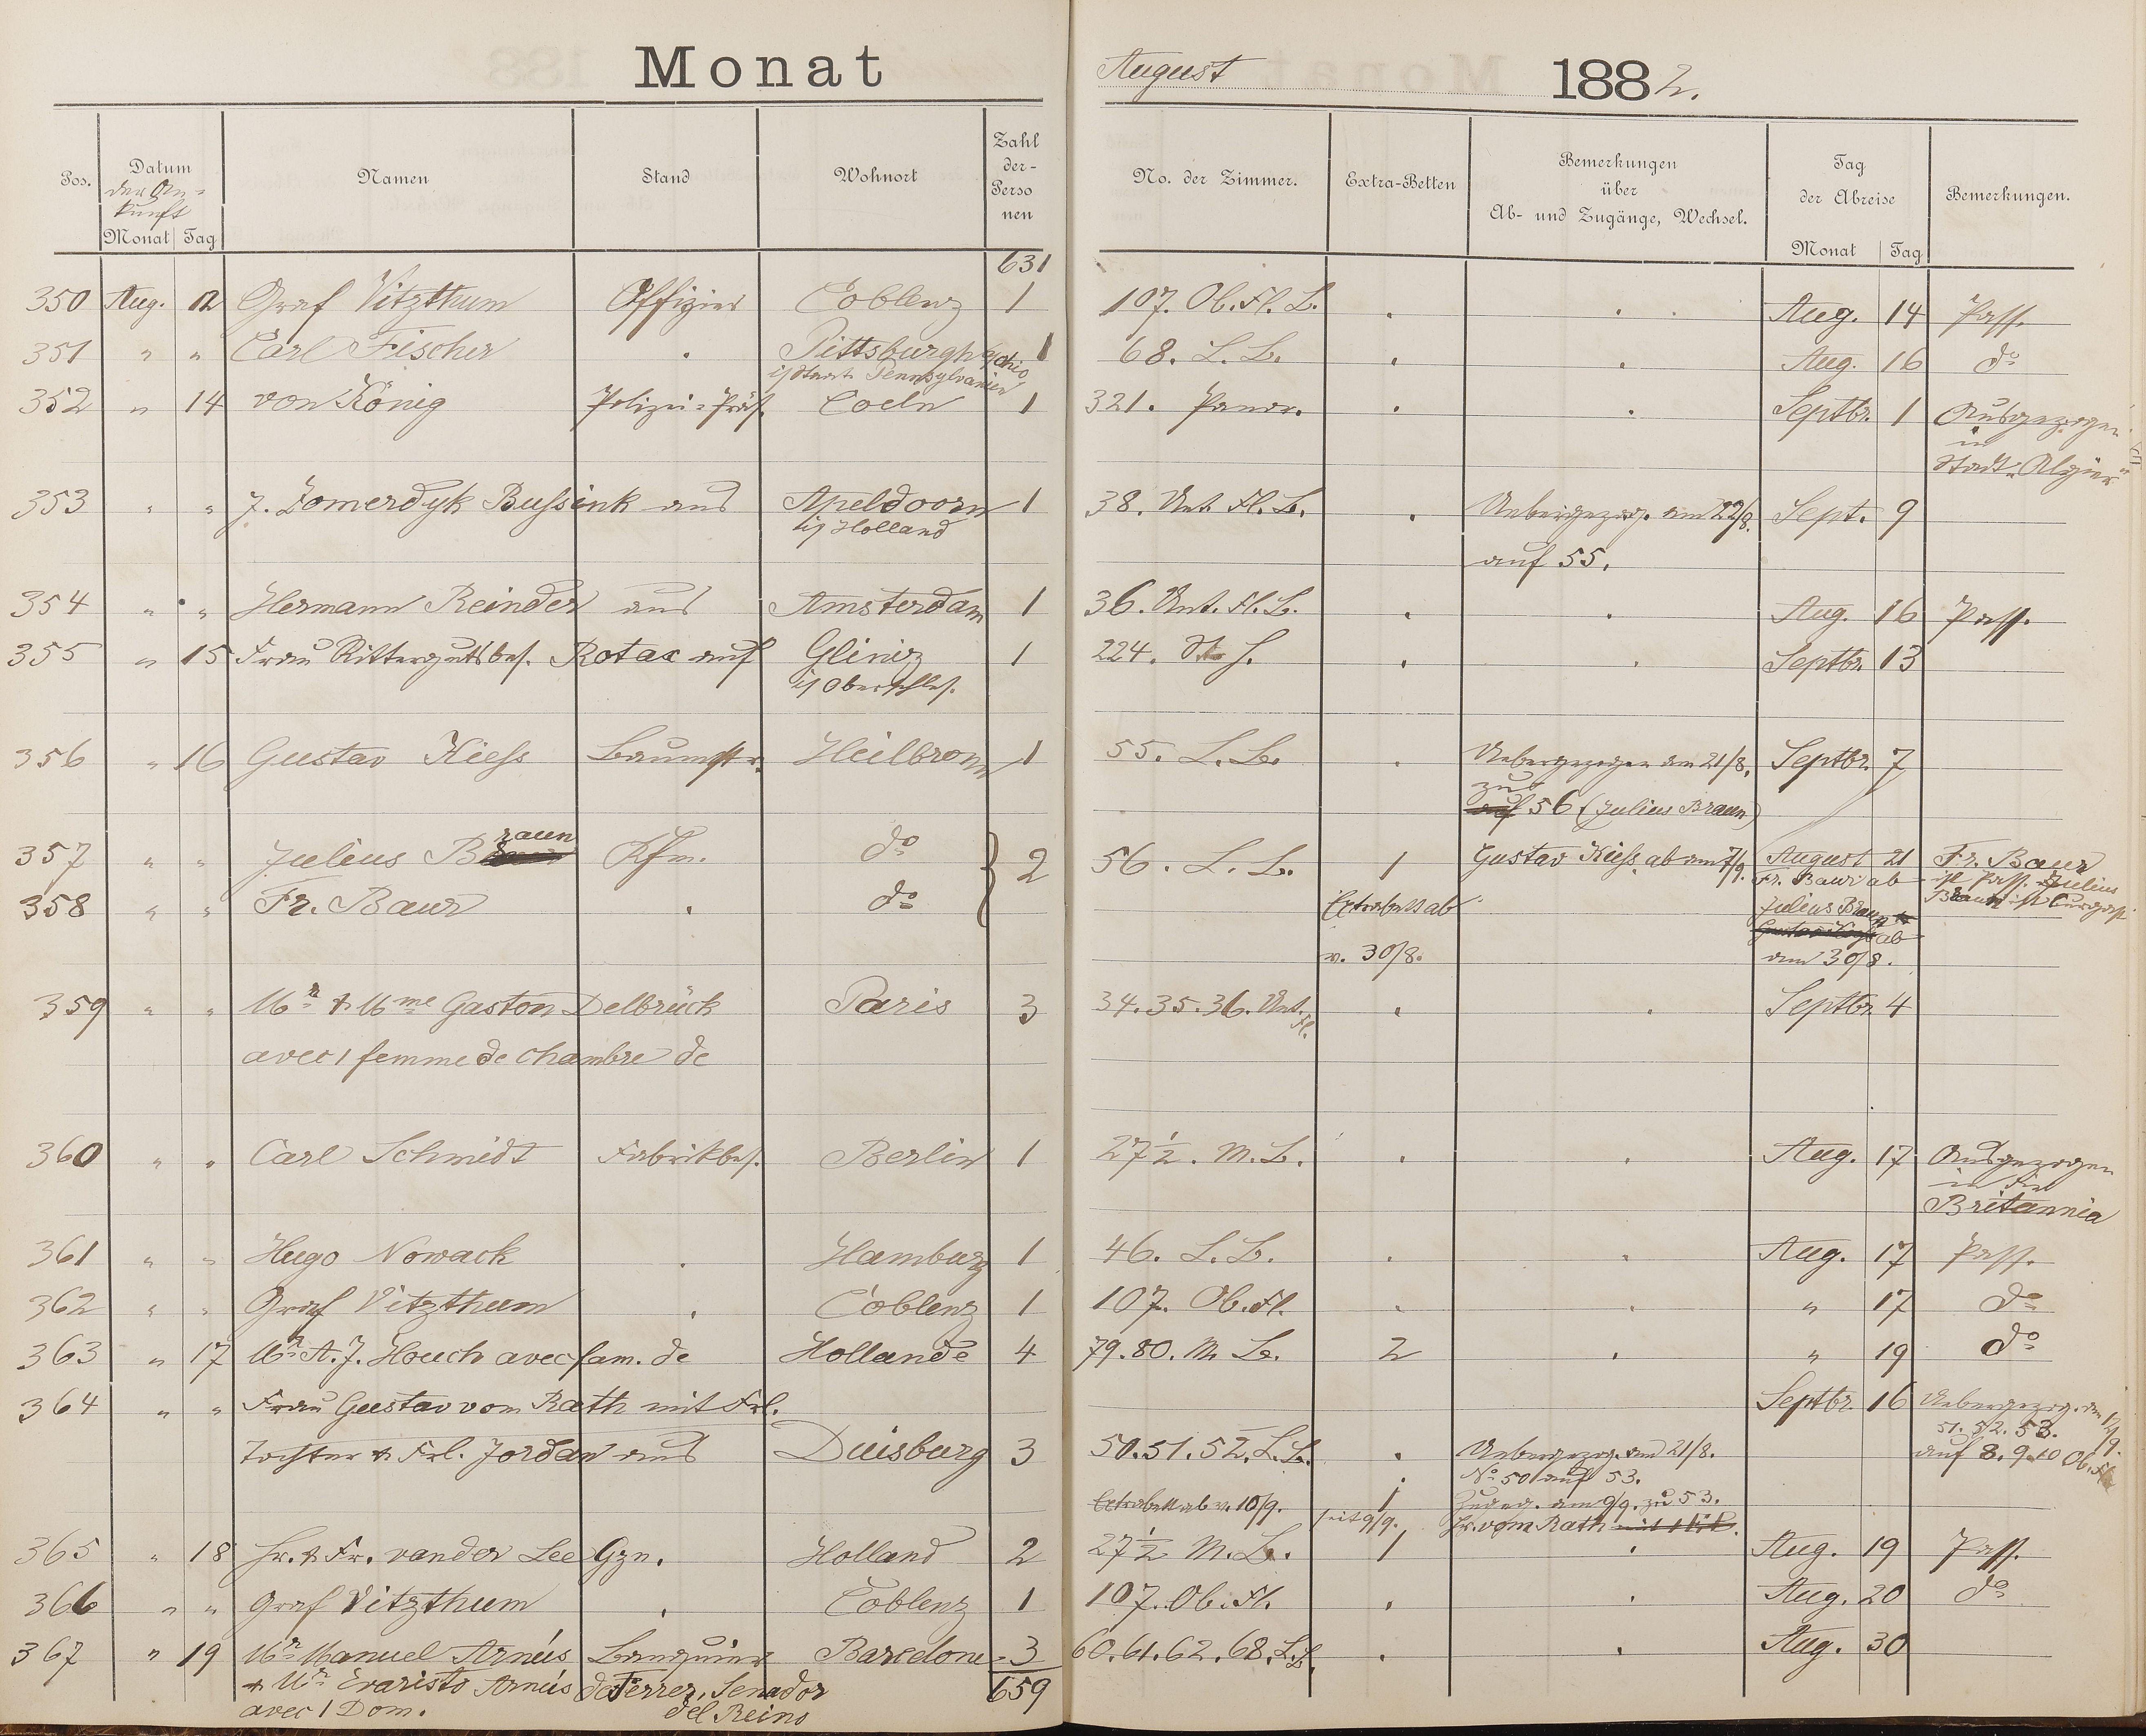 Monat August 1882.
Pos. Datum der Ankunft Monat Tag Namen Stand Wohnort Zahl der Personen No. der Zimmer. Extra-Betten Bemerkungen über Ab- und Zugänge, Wechsel. Tag der Abreise Monat Tag Bemerkungen.
631
350 Aug. 12 Graf Vitzthum Offizier Coblenz 1 107. Ob. Fl. L. . . Aug. 14 Pass.
351 " " Carl Fischer . Pittsburgh 1 68. L. L. . . Aug. 16 do
i/ Staate Pennsylvanien
352 " 14 von König Polizei-Präs. Coeln 1 321. Panor. . . Septbr. 1 Ausgezogen
in
Stadt "Algier"
353 " " J. Zomerdyk Bussink aus Apeldoorn 1 38. Unt. Fl. L. . Uebergezog. am 22/8. Sept. 9
i/ Holland
auf 55.
354 " " Hermann Reinder aus Amsterdam 1 36. Unt. Fl. L. . . Aug. 16 Pass.
355 " 15 Frau Rittergutsbes. Rotax auf Glinitz 1 224. . . Septbr. 13
i/ Oberschles.
356 " 16 Gustav Kiess Baumstr. Heilbronn 1 55. L. L. . Uebergezogen am 21/8. Septbr. 7
zu
auf 56 (Julius Braun)
357 " " Julius Braun Kfm. do 2 56. L. L. 1 Gustav Kiess ab am 7/9. August 21 Fr. Baur
Fr. Baur ab ist Pass. Julius
358 " " Fr. Baur . do Extrabett ab Julius Braun Braun ist Curgast
ab
v. 30/8. am 30/8.
359 " " Mr & Mme Gaston Delbrück Paris 3 34. 35. 36. Unt. Fl. . . Septbr. 4
avec 1 femme de chambre de
360 " " Carl Schmidt Fabrikbes. Berlin 1 27 1/2. M. L. . . Aug. 17 Ausgezogen
in die
Britannia
361 " " Hugo Nowack . Hamburg 1 46. L. L. . . Aug. 17 Pass.
362 " " Graf Vitzthum . Coblenz 1 107. Ob. Fl. . . " 17 do
363 " 17 Mr A. J. Houch avec fam. de Hollande 4 79. 80. M. L. 2 . " 19 do
364 " " Frau Gustav vom Rath mit Frl. Septbr. 16 Uebergezog. am
51. 52. 53.
Tochter & Frl. Jordan aus Duisburg 3 50. 51. 52. L. L. . Uebergezog. am 21/8. auf 8. 9. 10 Ob. Fl.
No 50 auf 53.
Extrabett ab v. 10/9. seit 9/9. 1 Zugeg. am 9/9. zu 53.
Hr. vom Rath
365 " 18 Hr. & Fr. van der Lee Gzn. Holland 2 27 1/2 M. L. 1 . Aug. 19 Pass.
366 " " Graf Vitzthum . Coblenz 1 107. Ob. Fl. . . Aug. 20 do
367 " 19 Mr Manuel Arnús Banquier Barcelone 3 60. 61. 62. 68. L. L. . . Aug. 30
& Mr Evaristo Arnús de Ferrer, Senador 659
avec 1 Dom. del Reino